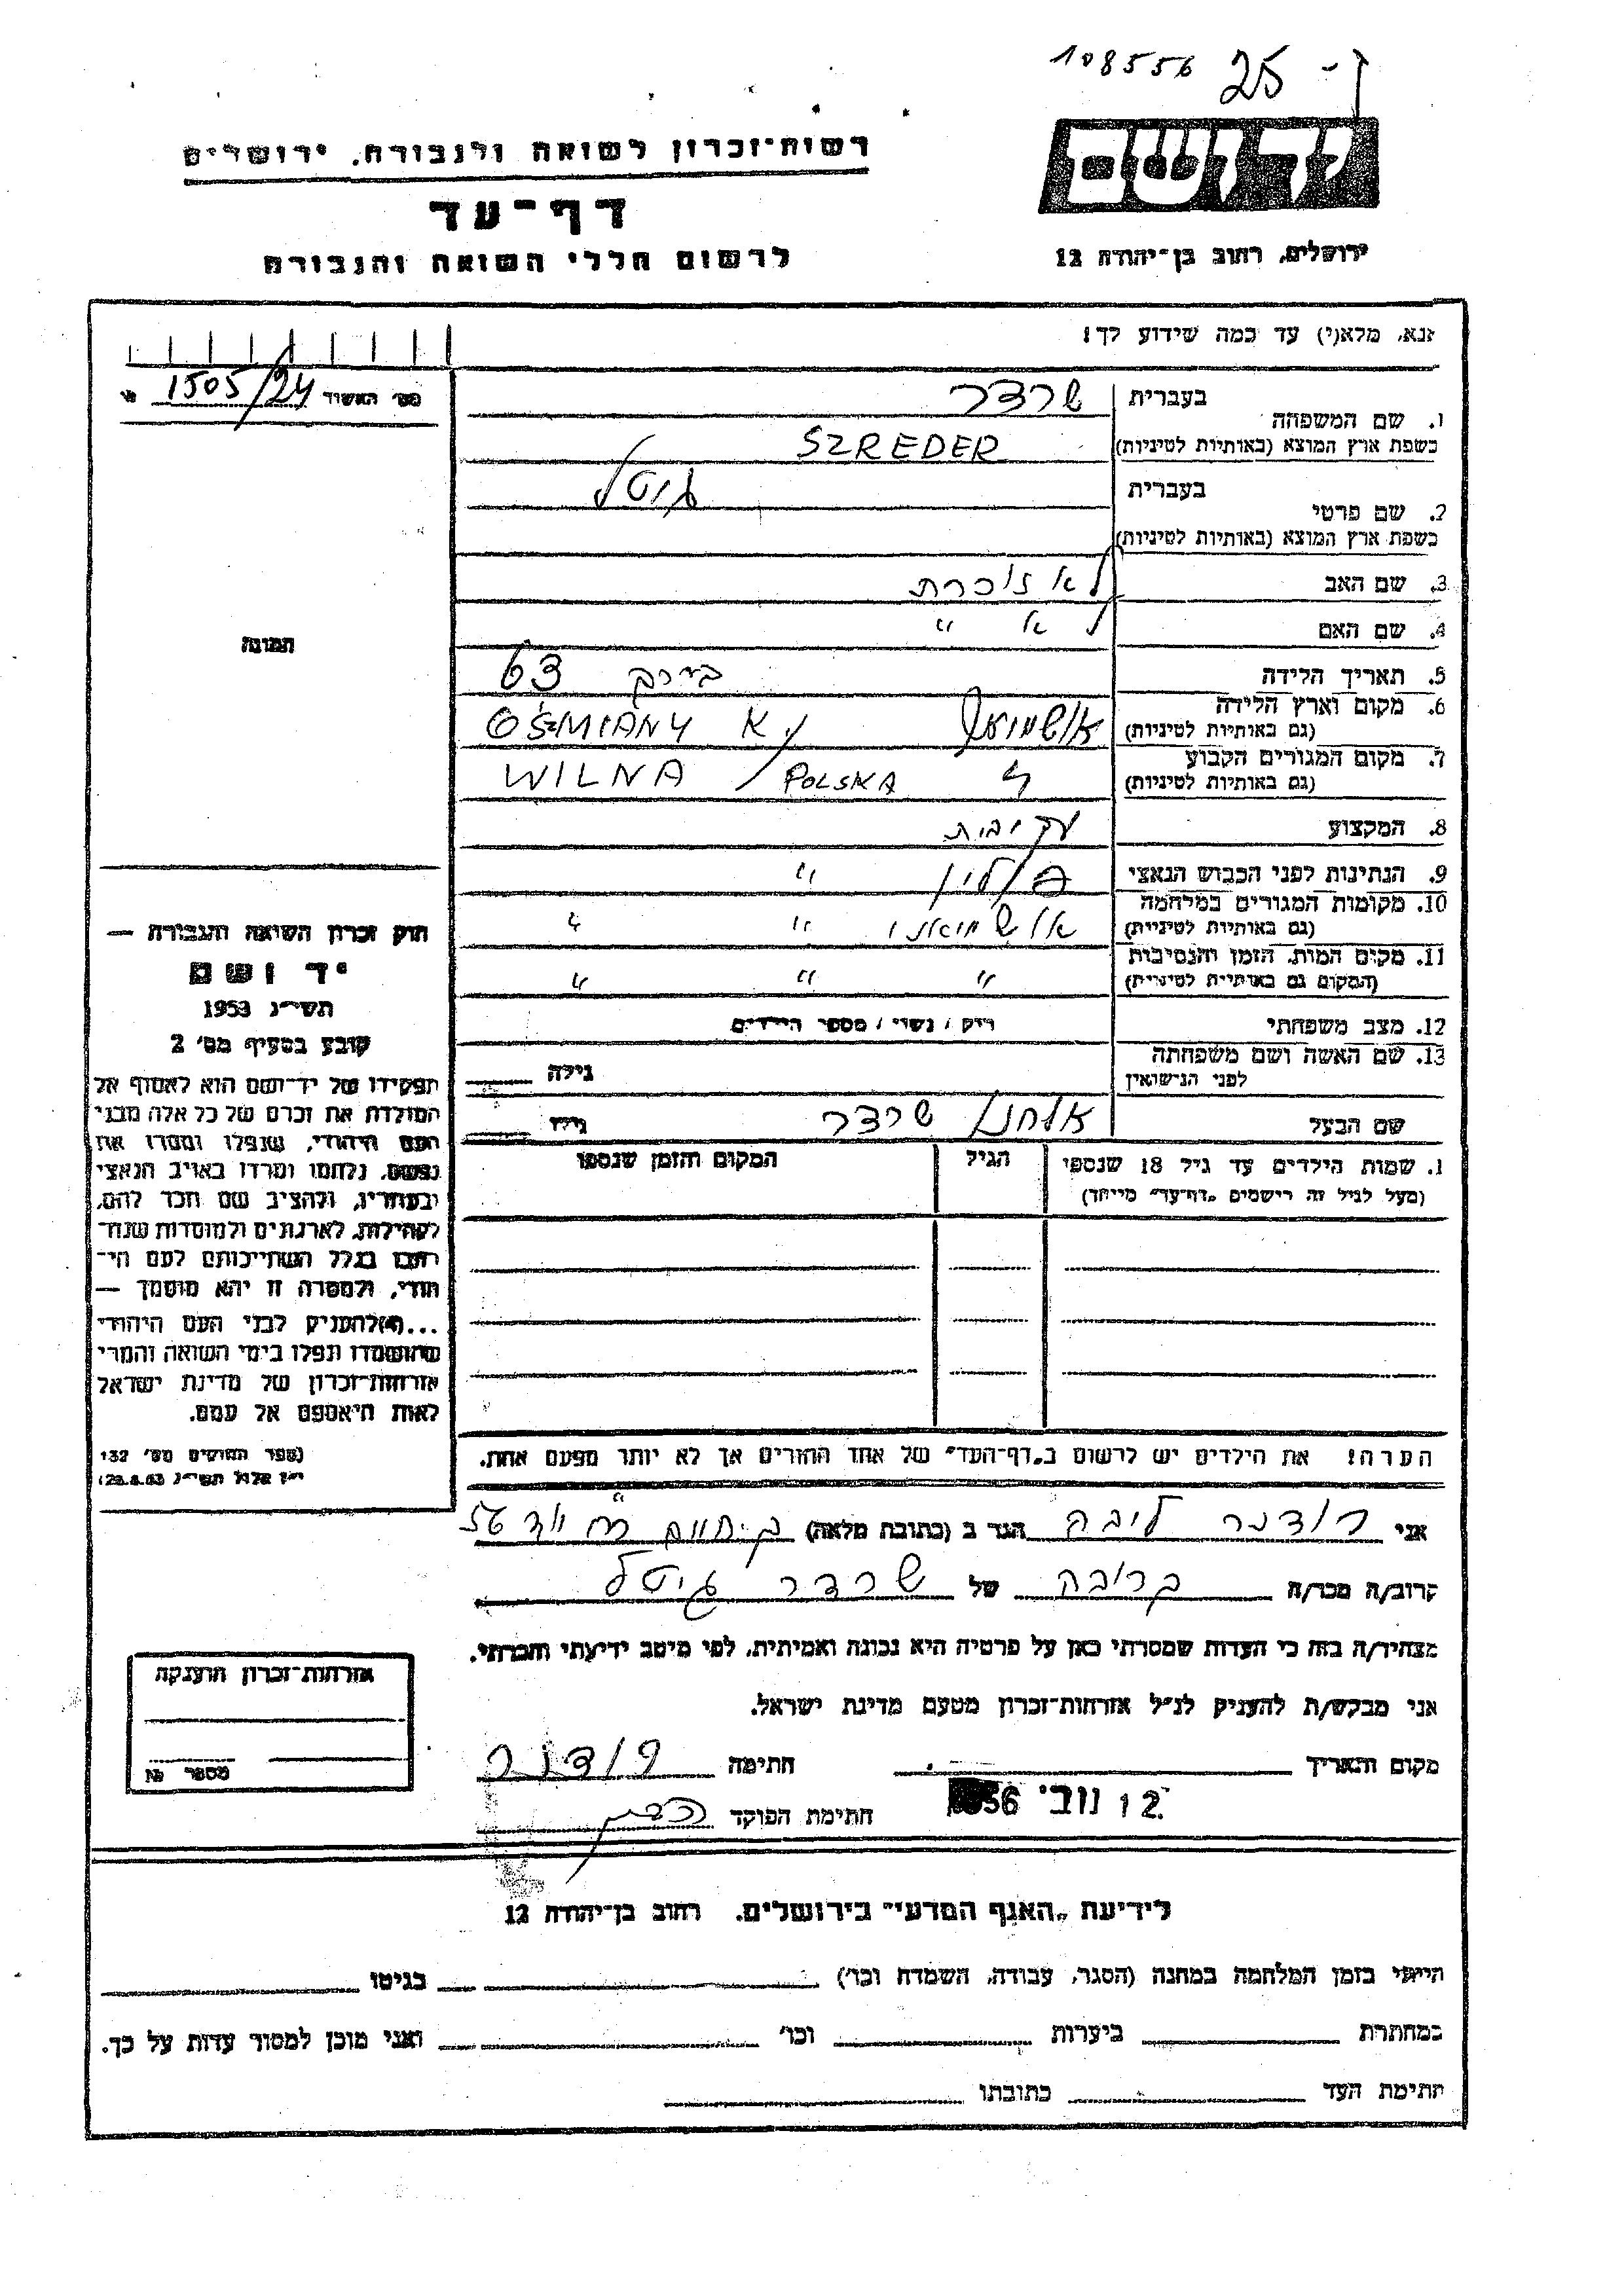 108556 25 - ך
רשות-זכרון לשואה ולגבורה, ירושלים
דף-עד
לרשום חללי השואה והגבורה
יד ושם
ירושלים, רחוב בן-יהודה 12
נא, מלא(י) עד כמה שידוע לך!
מס׳ האשוד 1505/24
1. שם המשפחה
בעברית שרדר
בשפת ארץ המוצא (באותיות לטיניות) SZREDER
2. שם פרטי
בעברית גיטל
בשפת ארץ המוצא (באותיות לטיניות)
3. שם האב לא זוכרת
4. שם האם לא "
5. תאריך הלידה בערך 63
6. מקום וארץ הלידה
(גם באותיות לטיניות) OŚZMIANY
7. מקום המגורים הקבוע
(גם באותיות לטיניות) WILNA / POLSKA
8. המקצוע עקיבות
9. הנתינות לפני הכבוש הנאצי פולין "
10. מקומות המגורים במלחמה
(גם באותיות לטיניות) אושמיאני " "
11. מקום המות, הזמן והנסיבות
(המקום גם באותיות לטיניות) " " "
12. מצב משפחתי רוק / נשוי / מספר הילדים
13. שם האשה ושם משפחתה
לפני הנישואין גילה
שם הבעל אלחנן שרדר גילו
1. שמות הילדים עד גיל 18 שנספו הגיל המקום והזמן שנספו
(מעל לגיל זה רישמים "דף-עד" מיוחד)
הערה! את הילדים יש לרשום ב"דף-העד" של אחד ההורים אך לא יותר מפעם אחת.
תמונה
חוק זכרון השואה והגבורה —
יד ושם
תשי״ג 1953
קובע בסעיף מס׳ 2
תפקידו של יד-ושם הוא לאסוף אל
המולדת את זכרם של כל אלה מבני
העם היהודי, שנפלו ומסרו את
נפשם, נלחמו ומרדו באויב הנאצי
ובעוזריו, ולהציב שם וזכר להם,
לקהילות, לארגונים ולמוסדות שנח-
רבו בגלל השתייכותם לעם הי-
הודי, ולמטרה זו יהא מוסמך —
...(4)להעניק לבני העם היהודי
שהושמדו ונפלו בימי השואה והמרי
אזרחות-זכרון של מדינת ישראל
לאות היאספם אל עמם.
(ספר החוקים מס׳ 132
י״ז אלול תשי״ג 28.8.53)
אני רודנר ליבה הגר ב (כתובת מלאה)
קרוב/ה מכר/ה קרובה של שרדר גיטל
מצהיר/ה בזה כי העדות שמסרתי כאן על פרטיה היא נכונה ואמיתית, לפי מיטב ידיעתי והכרתי.
אני מבקש/ת להעניק לנ״ל אזרחות-זכרון מטעם מדינת ישראל.
מקום ותאריך חתימה רודנר
12 נוב׳ 1956 חתימת הפוקד
אזרחות-זכרון הוענקה
מספר №
לידיעת "האגף המדעי" בירושלים, רחוב בן-יהודה 12
הייתי בזמן המלחמה במחנה (הסגר, עבודה, השמדה וכו׳) בגיטו
במחתרת ביערות וכו׳ ואני מוכן למסור עדות על כך.
חתימת העד כתובתו